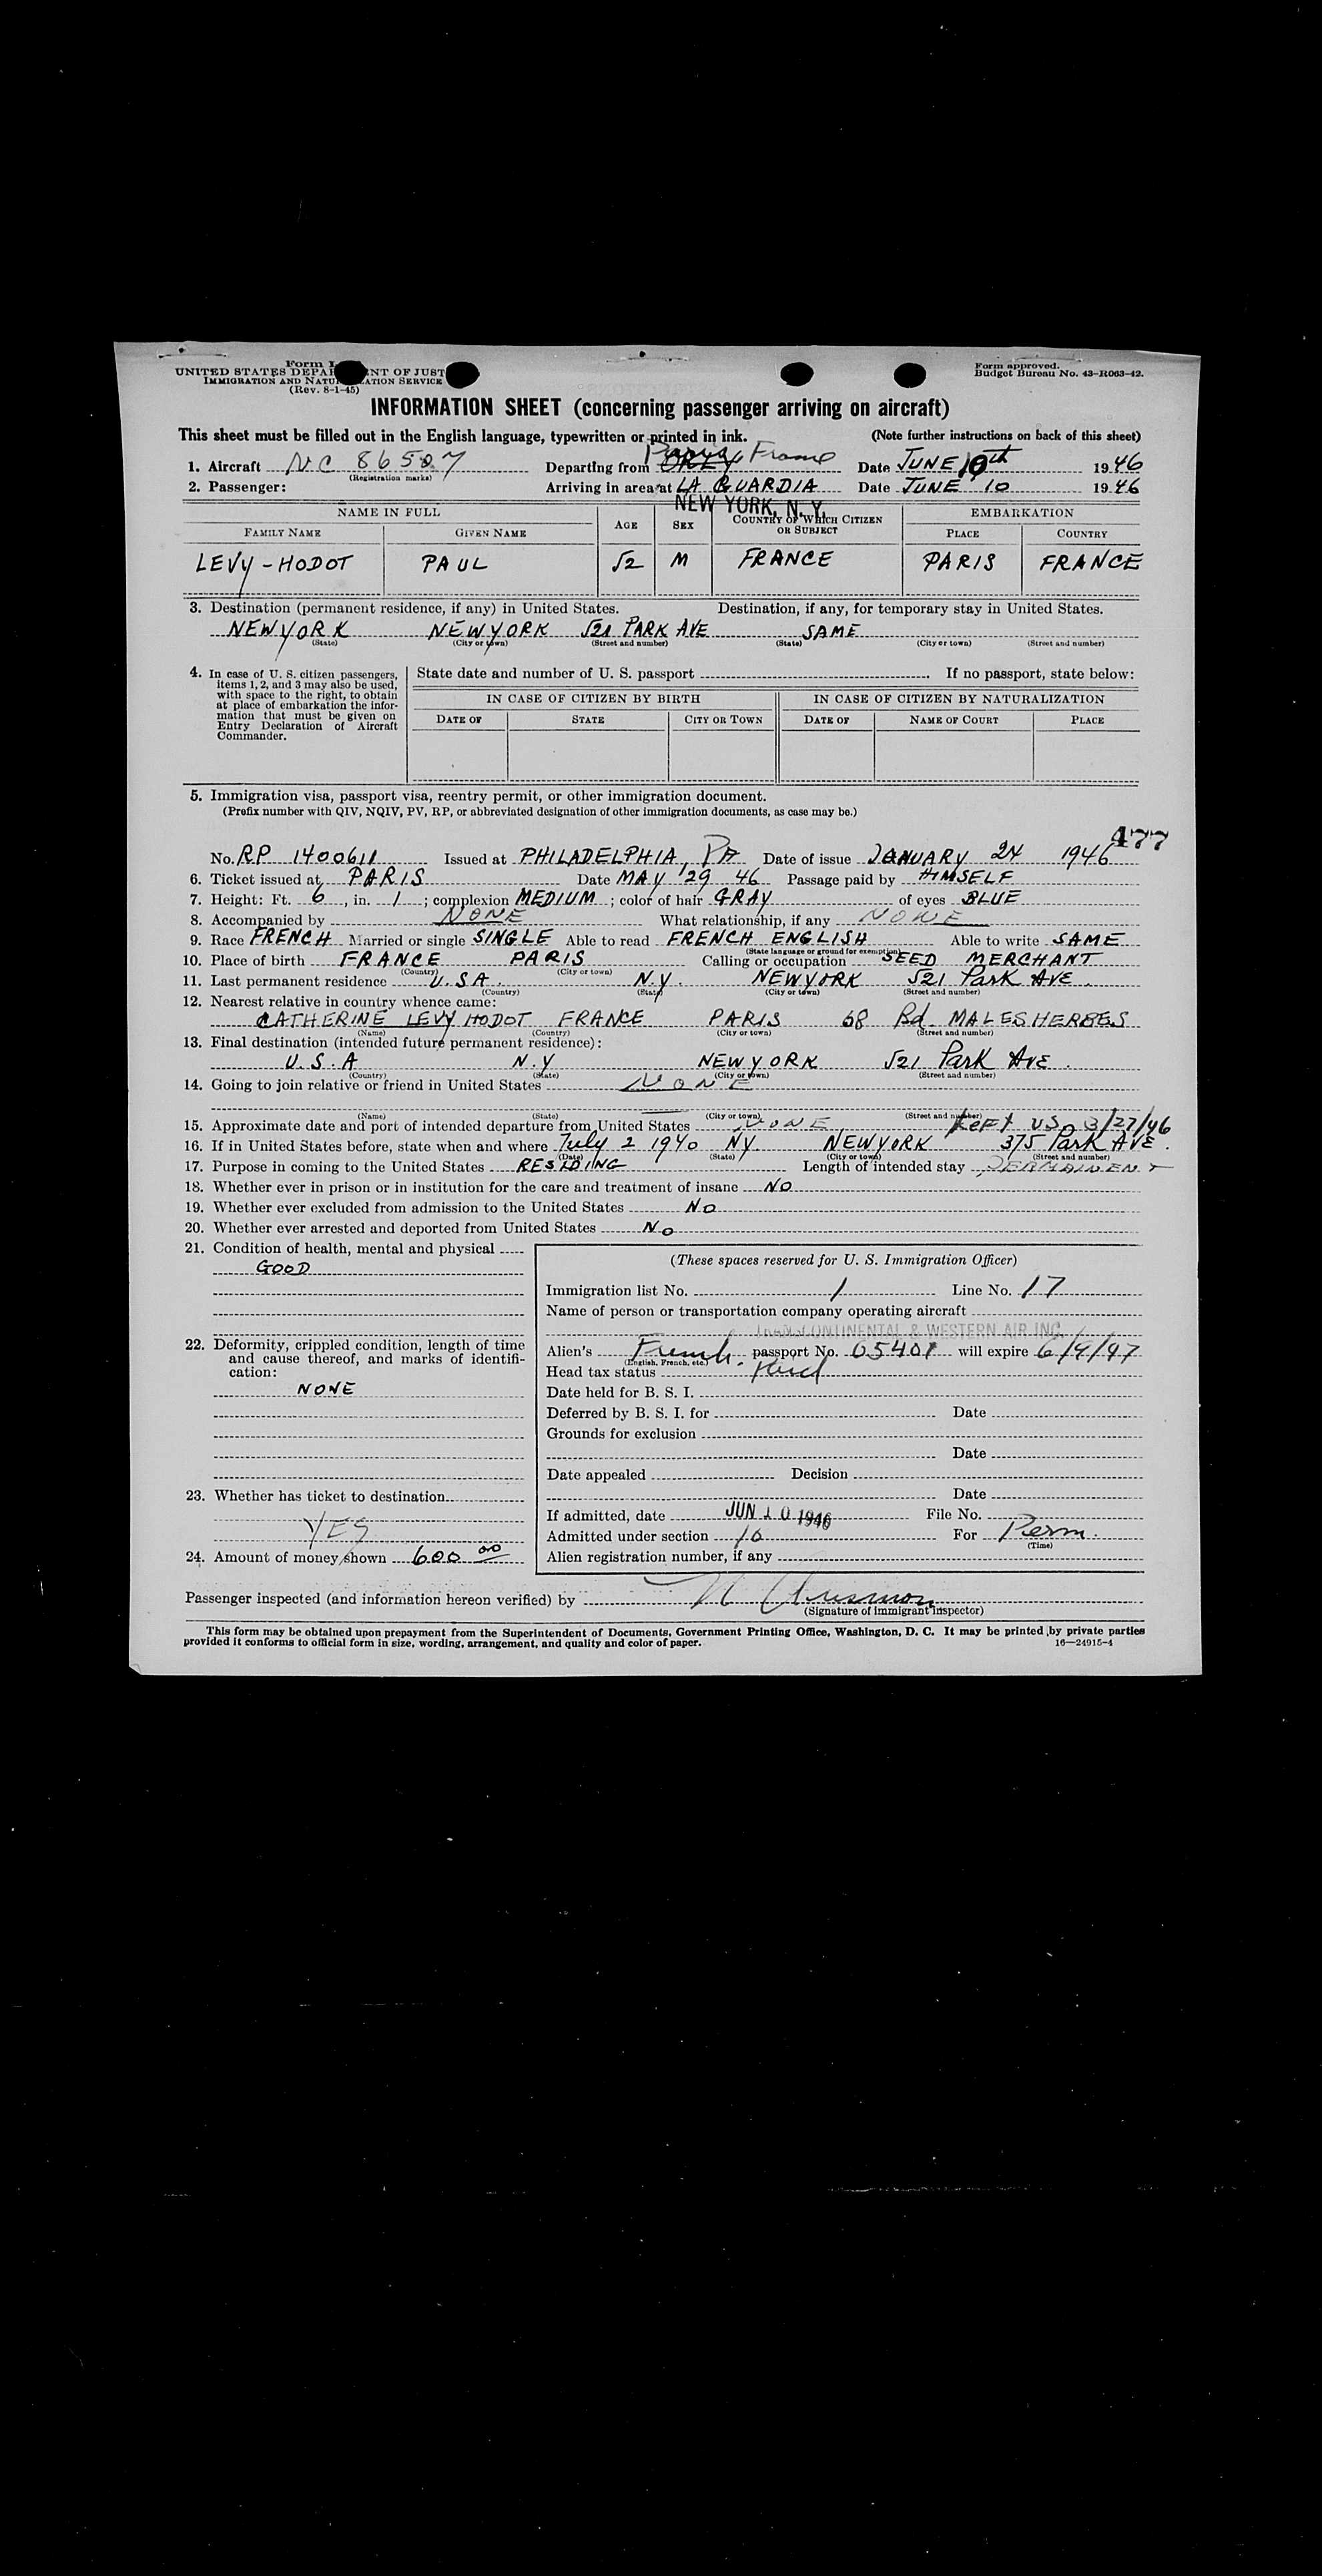 Form I
UNITED STATES DEPA NT OF JUST
IMMIGRATION AND NATU ATION SERVICE
(Rev. 8-1-45)
Form approved.
Budget Bureau No. 43-R063-42.
INFORMATION SHEET (concerning passenger arriving on aircraft)
This sheet must be filled out in the English language, typewritten or printed in ink. (Note further instructions on back of this sheet)
1. Aircraft NC 86507 Departing from ORLY Paris France Date JUNE 10th 1946
(Registration marks)
2. Passenger: Arriving in area at LA GUARDIA Date JUNE 10 1946
NEW YORK, N. Y.
NAME IN FULL AGE SEX COUNTRY OF WHICH CITIZEN OR SUBJECT EMBARKATION
FAMILY NAME GIVEN NAME PLACE COUNTRY
LEVY-HODOT PAUL 52 M FRANCE PARIS FRANCE
3. Destination (permanent residence, if any) in United States. Destination, if any, for temporary stay in United States.
NEW YORK NEW YORK 521 PARK AVE SAME
(State) (City or town) (Street and number) (State) (City or town) (Street and number)
4. In case of U. S. citizen passengers, items 1, 2, and 3 may also be used, with space to the right, to obtain at place of embarkation the information that must be given on Entry Declaration of Aircraft Commander.
State date and number of U. S. passport If no passport, state below:
IN CASE OF CITIZEN BY BIRTH IN CASE OF CITIZEN BY NATURALIZATION
DATE OF STATE CITY OR TOWN DATE OF NAME OF COURT PLACE
5. Immigration visa, passport visa, reentry permit, or other immigration document.
(Prefix number with QIV, NQIV, PV, RP, or abbreviated designation of other immigration documents, as case may be.)
477
No. RP 1400611 Issued at PHILADELPHIA, PA Date of issue JANUARY 24 1946
6. Ticket issued at PARIS Date MAY 29 46 Passage paid by HIMSELF
7. Height: Ft. 6, in. 1; complexion MEDIUM; color of hair GRAY of eyes BLUE
8. Accompanied by NONE What relationship, if any NONE
9. Race FRENCH Married or single SINGLE Able to read FRENCH ENGLISH Able to write SAME
(State language or ground for exemption)
10. Place of birth FRANCE PARIS Calling or occupation SEED MERCHANT
(Country) (City or town)
11. Last permanent residence U.S.A. N.Y. NEW YORK 521 Park AVE.
(Country) (State) (City or town) (Street and number)
12. Nearest relative in country whence came:
CATHERINE LEVY HODOT FRANCE PARIS 68 Bd. MALESHERBES
(Name) (Country) (City or town) (Street and number)
13. Final destination (intended future permanent residence):
U.S.A N.Y NEW YORK 521 Park AVE.
(Country) (State) (City or town) (Street and number)
14. Going to join relative or friend in United States NONE
(Name) (State) (City or town) (Street and number)
15. Approximate date and port of intended departure from United States NONE Left US 3/27/46
16. If in United States before, state when and where July 2 1940 NY. NEW YORK 375 Park AVE.
(Date) (State) (City or town) (Street and number)
17. Purpose in coming to the United States RESIDING Length of intended stay PERMAINENT
18. Whether ever in prison or in institution for the care and treatment of insane NO
19. Whether ever excluded from admission to the United States NO
20. Whether ever arrested and deported from United States NO
21. Condition of health, mental and physical
GOOD
22. Deformity, crippled condition, length of time and cause thereof, and marks of identification:
NONE
23. Whether has ticket to destination
YES
24. Amount of money shown 600 00
(These spaces reserved for U. S. Immigration Officer)
Immigration list No. 1 Line No. 17
Name of person or transportation company operating aircraft
TRANSCONTINENTAL & WESTERN AIR INC.
Alien's French passport No. 05401 will expire 6/9/47
(English, French, etc.)
Head tax status
Date held for B. S. I.
Deferred by B. S. I. for Date
Grounds for exclusion
Date
Date appealed Decision
Date
If admitted, date JUN 10 1946 File No.
Admitted under section 10 For Perm.
(Time)
Alien registration number, if any
Passenger inspected (and information hereon verified) by
(Signature of immigrant inspector)
This form may be obtained upon prepayment from the Superintendent of Documents, Government Printing Office, Washington, D. C. It may be printed by private parties
provided it conforms to official form in size, wording, arrangement, and quality and color of paper. 16—24915-4